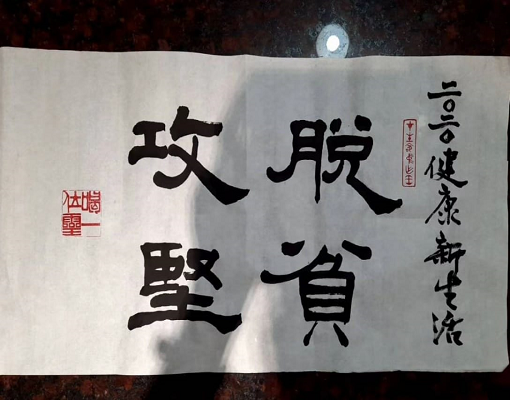 二〇二〇健康新生活
脱貧
攻堅